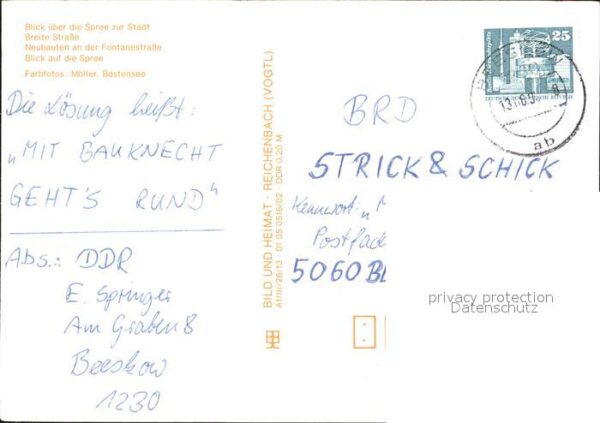 Blick über die Spree zur Stadt
Breite Straße
Neubauten an der Fontanestraße
Blick auf die Spree
Farbfotos: Möller, Bestensee
Die Lösung heißt:
„MIT BAUKNECHT
GEHT'S RUND"
Abs.: DDR
E. Springer
Am Graben 8
Beeskow
1230
BILD UND HEIMAT · REICHENBACH (VOGTL)
A1/III/26/13 01 05 0516/02 DDR 0,20 M
25
ab
BRD
STRICK & SCHICK
Kennwort: „
Postfach
5060
privacy protection
Datenschutz